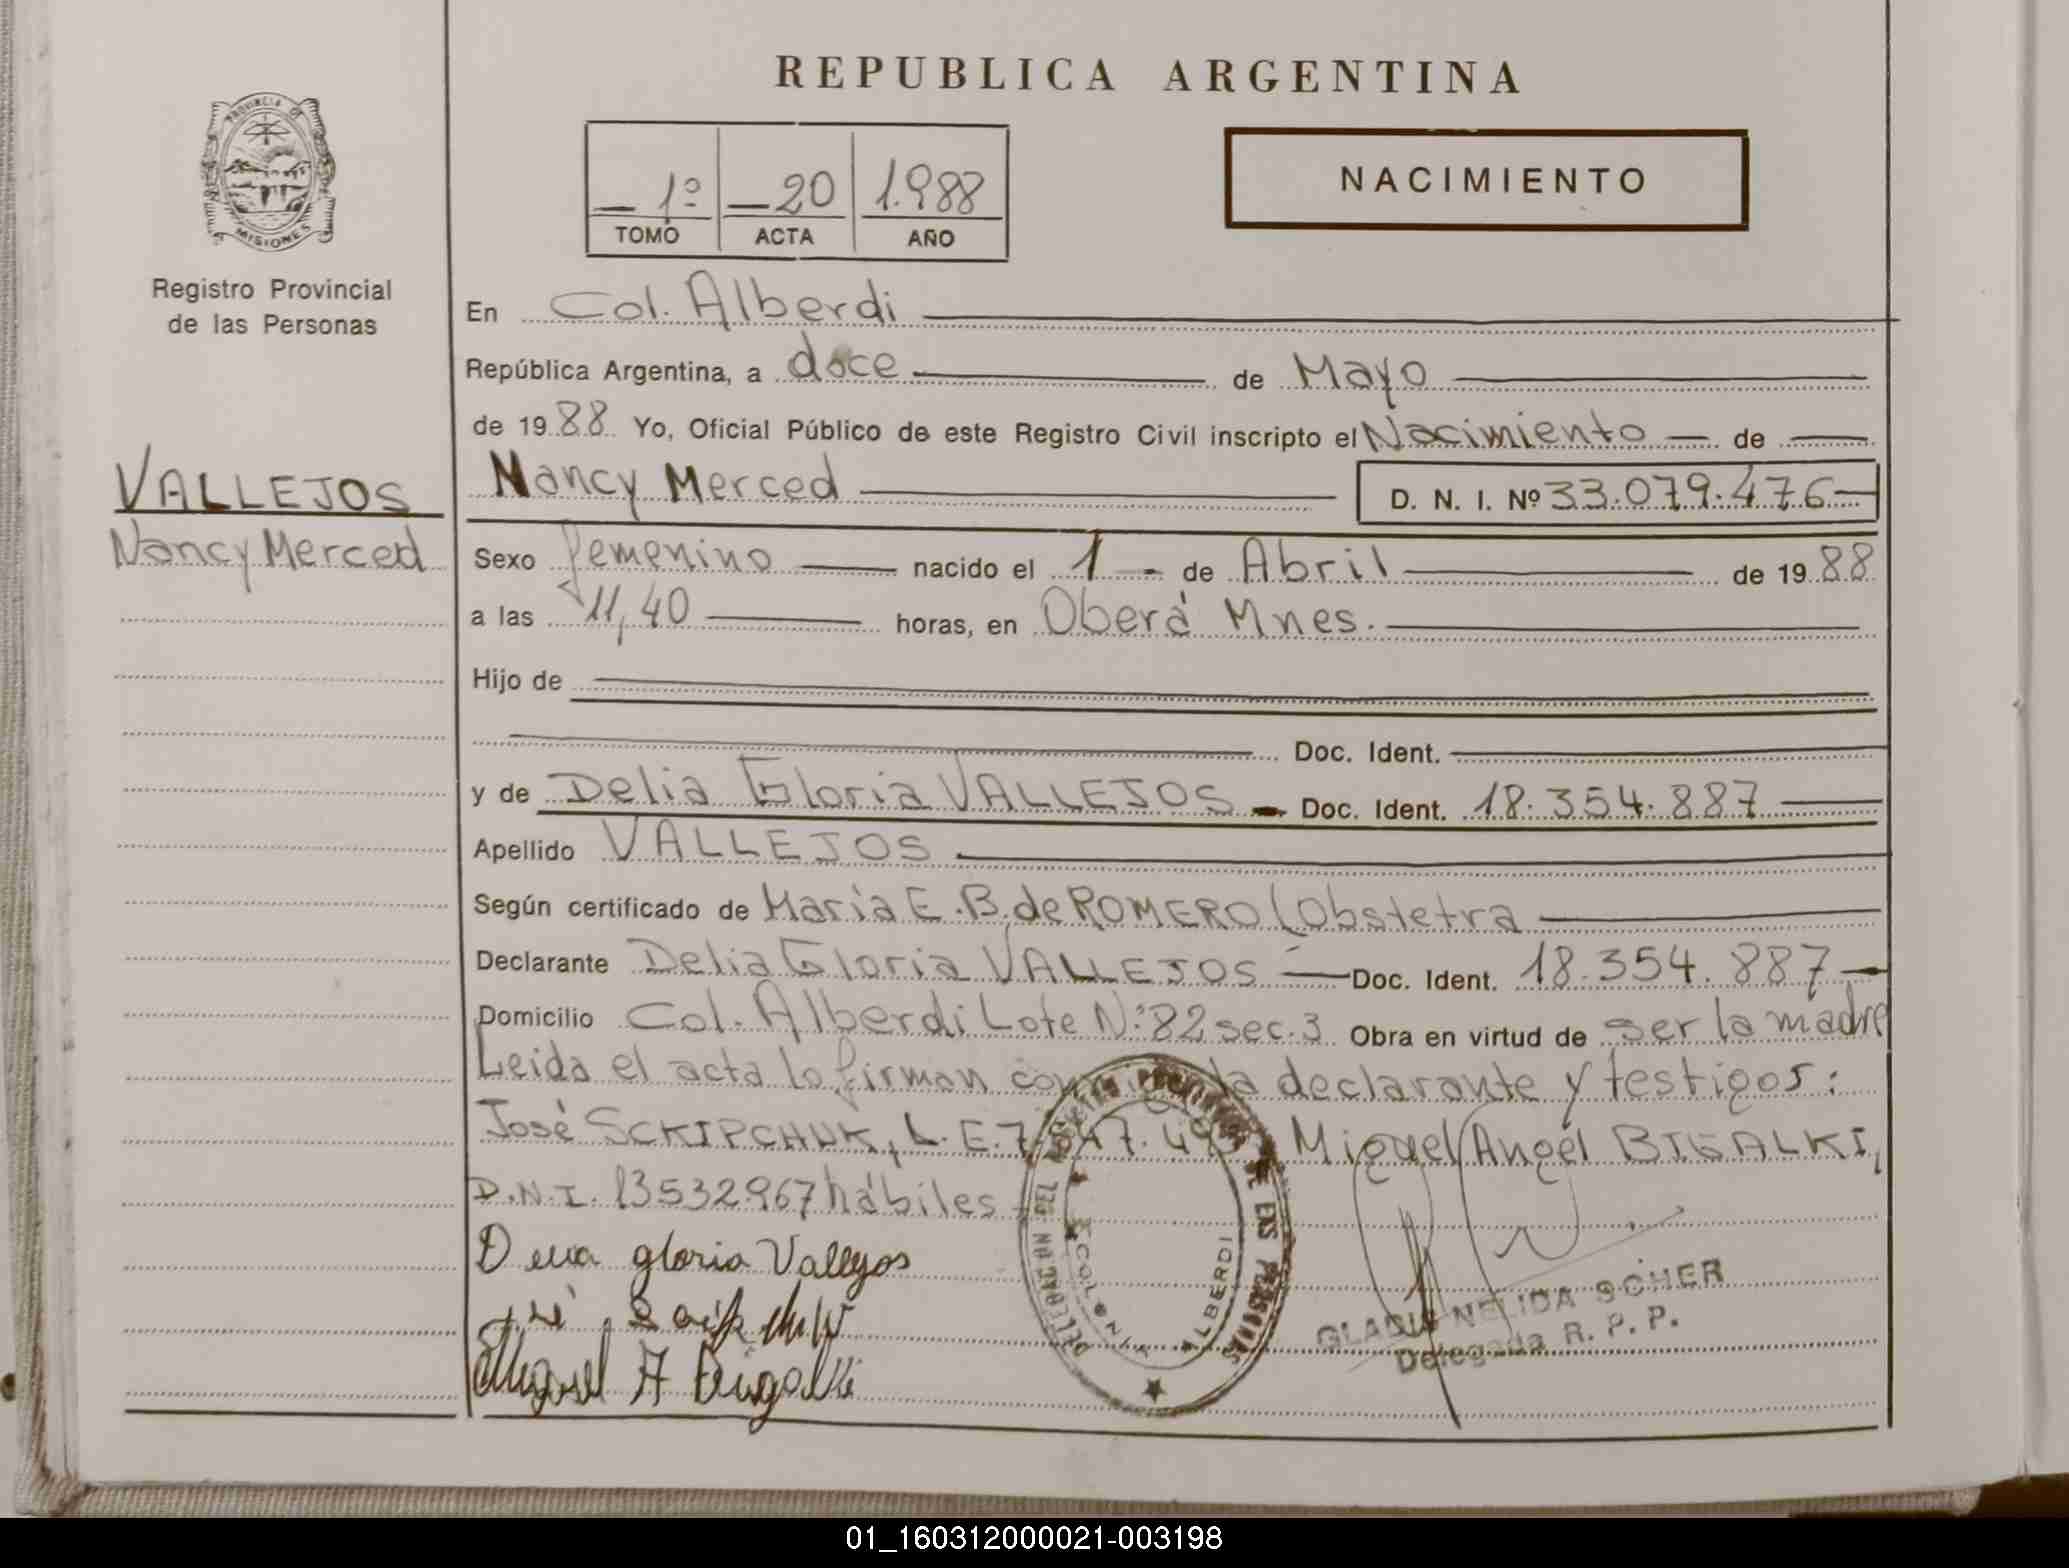 REPUBLICA ARGENTINA
PROVINCIA DE
MISIONES
Registro Provincial
de las Personas
1º 20 1.988
TOMO ACTA AÑO
NACIMIENTO
En Col. Alberdi
República Argentina, a doce de Mayo
de 1988 Yo, Oficial Público de este Registro Civil inscripto el Nacimiento de
VALLEJOS
Nancy Merced
Nancy Merced D. N. I. Nº 33.079.476
Sexo femenino nacido el 1 de Abril de 1988
a las 11,40 horas, en Oberá Mnes.
Hijo de
Doc. Ident.
y de Delia Gloria VALLEJOS Doc. Ident. 18.354.887
Apellido VALLEJOS
Según certificado de María E.B. de ROMERO (Obstetra
Declarante Delia Gloria VALLEJOS Doc. Ident. 18.354.887
Domicilio Col. Alberdi Lote Nº 82 sec. 3 Obra en virtud de ser la madre
Leida el acta lo firman la declarante y testigos:
José SCKIPCHUK, L.E. Miguel Angel BIGALKI,
D.N.I. 13532967 hábiles
gloria Vallejos
Miguel A Bigalki
COLONIA ALBERDI
DE LAS PERSONAS
GLADIS NELIDA SCHER
Delegada R. P. P.
01_160312000021-003198